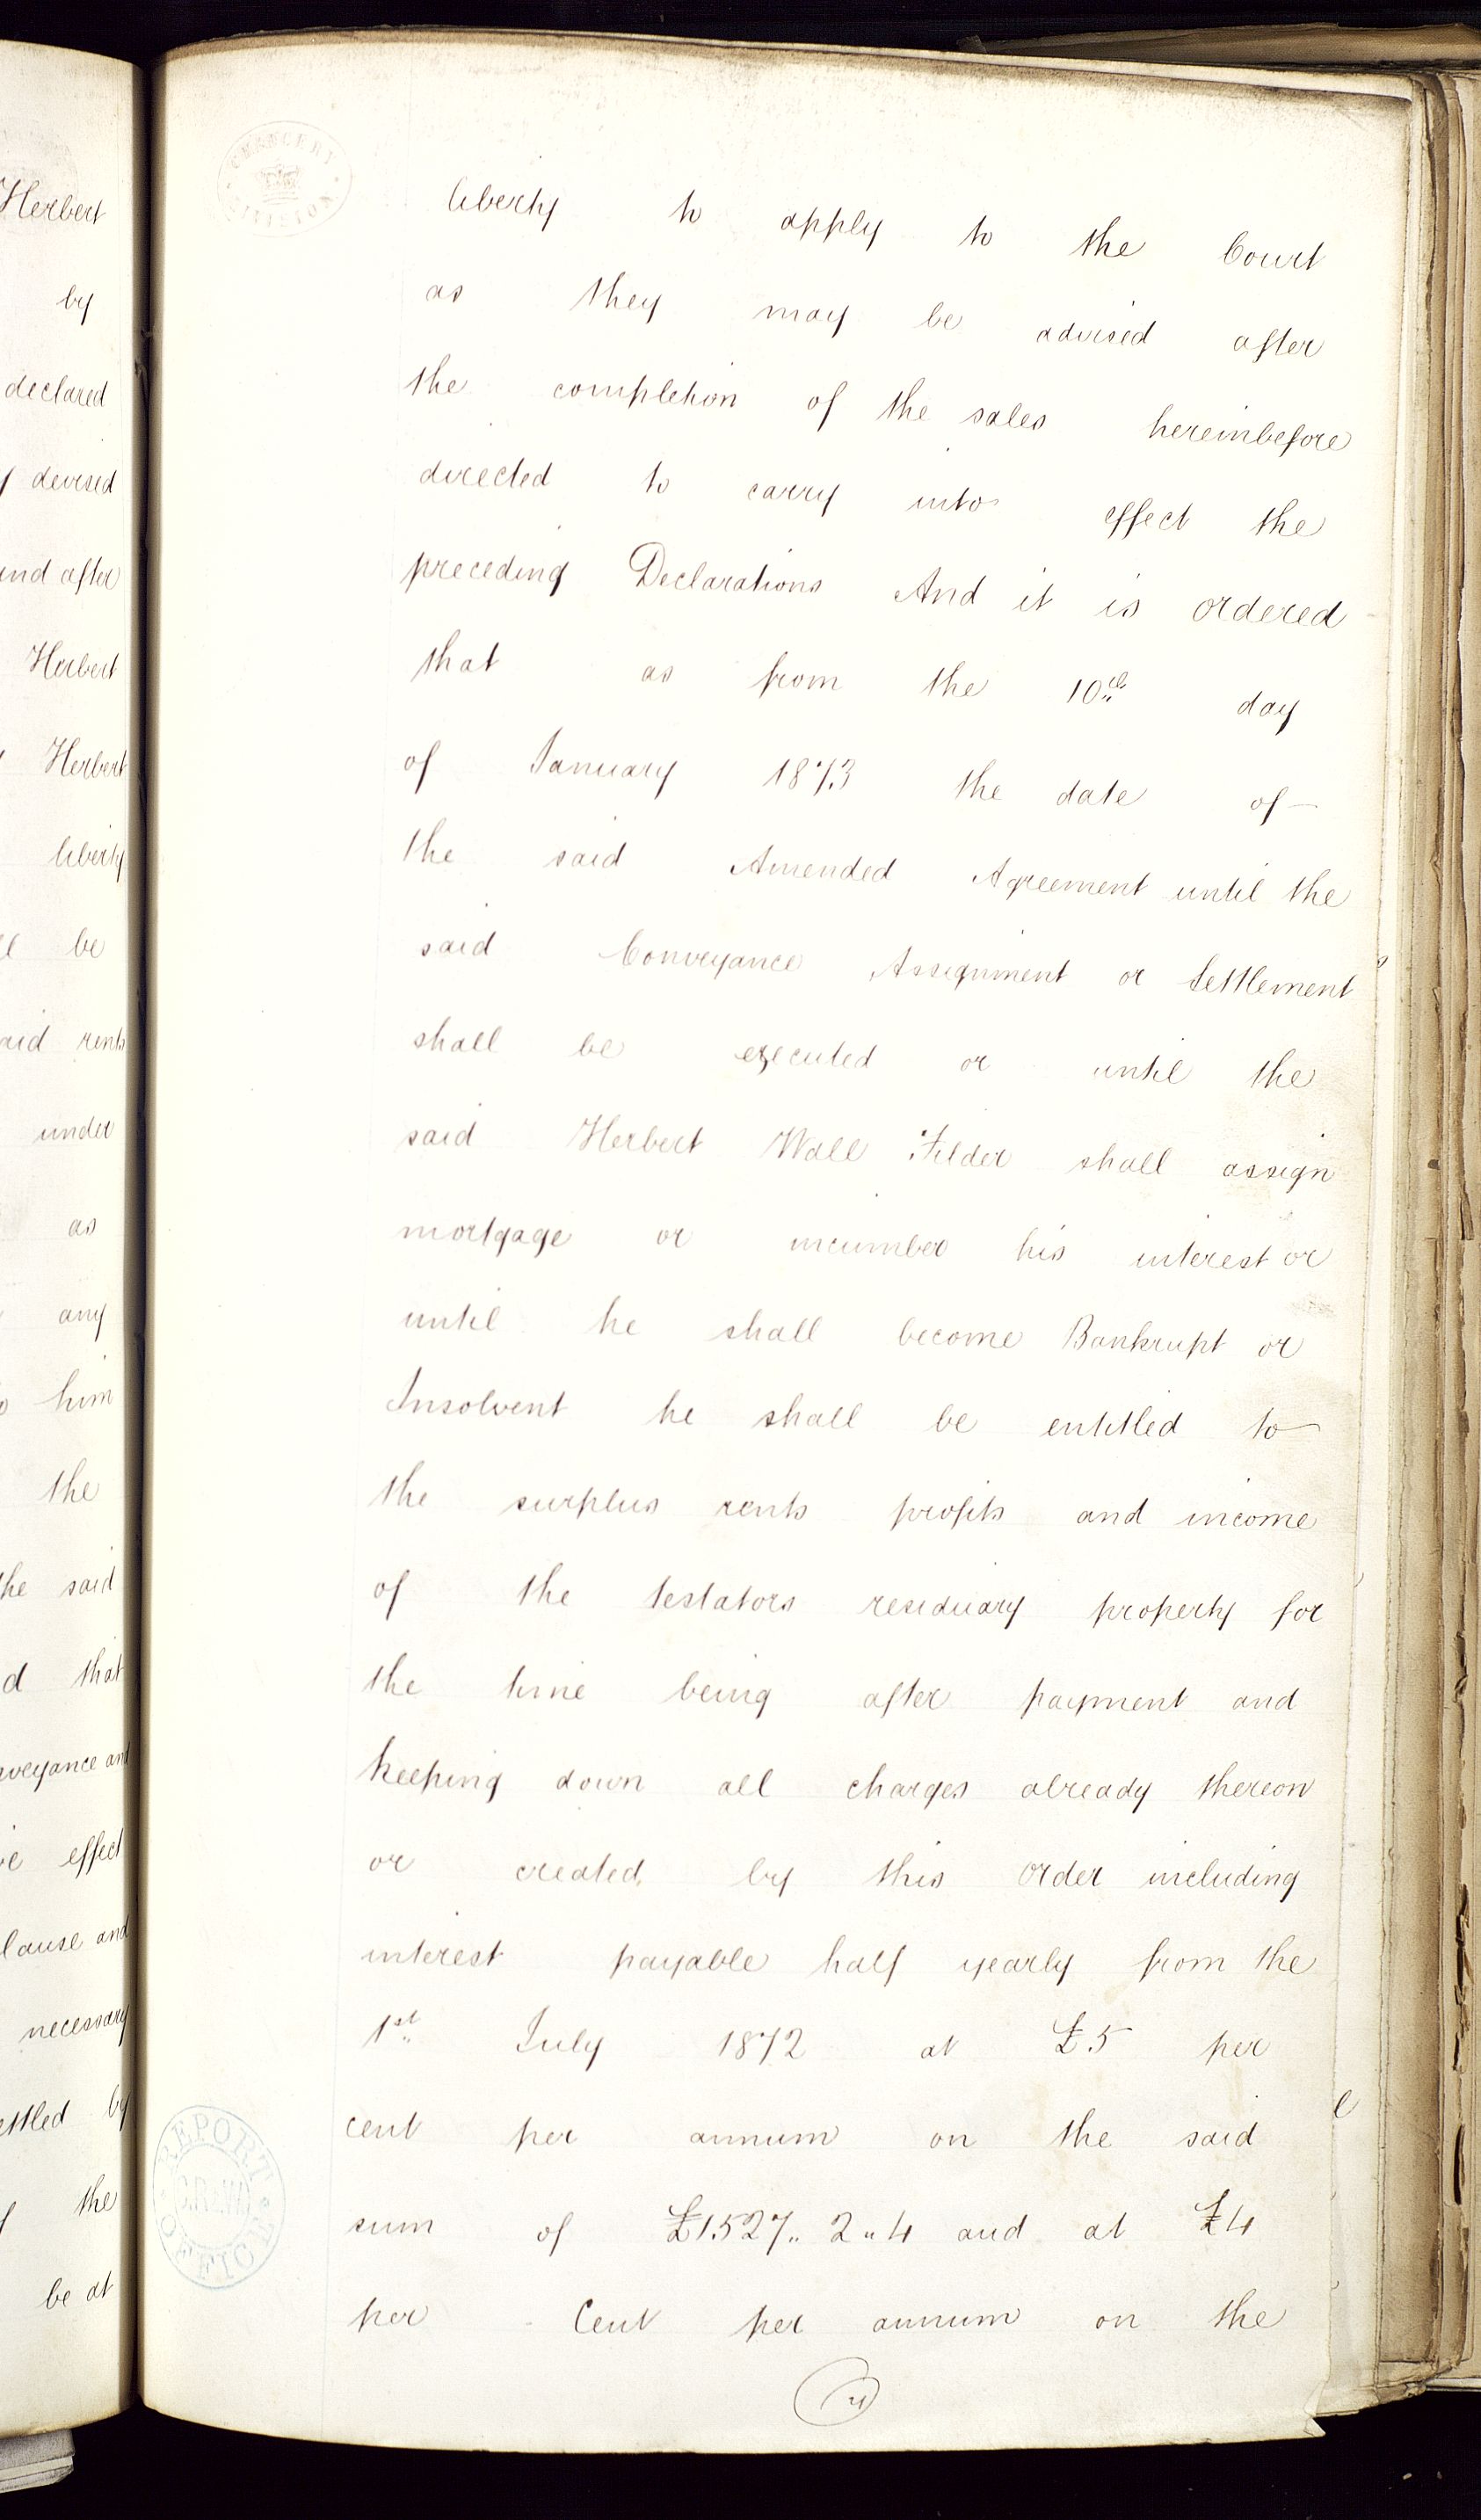 Herbert
by
declared
devised
and after
Herbert
Herbert
liberty
be
said rents
under
as
any
him
the
the said
that
effect
necessary
by
the
be at
CHANCERY
DIVISION
liberty to apply to the Court
as they may be advised after
the completion of the sales hereinbefore
directed to carry into effect the
preceding Declarations And it is ordered
that as from the 10th day
of January 1873 the date of
the said Amended Agreement until the
said Conveyance Assignment or Settlement
shall be executed or until the
said Herbert Wall Filder shall assign
mortgage or incumber his interest or
until he shall become Bankrupt or
Insolvent he shall be entitled to
the surplus rents profits and income
of the testators residuary property for
the time being after payment and
keeping down all charges already thereon
or created by this Order including
interest payable half yearly from the
1st July 1872 at £5 per
cent per annum on the said
sum of £1527 " 2 " 4 and at £4
per Cent per annum on the
REPORT
OFFICE